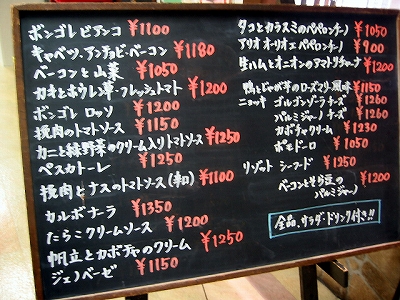 ボンゴレ ビアンコ ¥1100
キャベツ、アンチョビ・ベーコン ¥1180
ベーコンと山菜 ¥1050
カキとホウレン草・フレッシュトマト ¥1200
ボンゴレ ロッソ ¥1200
挽肉のトマトソース ¥1150
カニと緑野菜のクリーム入りトマトソース ¥1250
ペスカトーレ ¥1250
挽肉とナスのトマトソース(辛口) ¥1100
カルボナーラ ¥1350
たらこクリームソース ¥1200
帆立とカボチャのクリーム ¥1250
ジェノベーゼ ¥1150
タコとカラスミのペペロンチーノ ¥1050
アリオ・オーリオ ペペロンチーノ ¥900
生ハムとオニオンのアマトリチャーナ ¥1200
鴨とじゃが芋のローズマリー風味 ¥1150
ニョッキ ゴルゴンゾーラチーズ ¥1260
パルミジャーノチーズ ¥1260
カボチャクリーム ¥1230
ポモドーロ ¥1050
リゾット シーフード ¥1250
ベーコンとそら豆のパルミジャーノ ¥1200
全品、サラダ・ドリンク付き!!